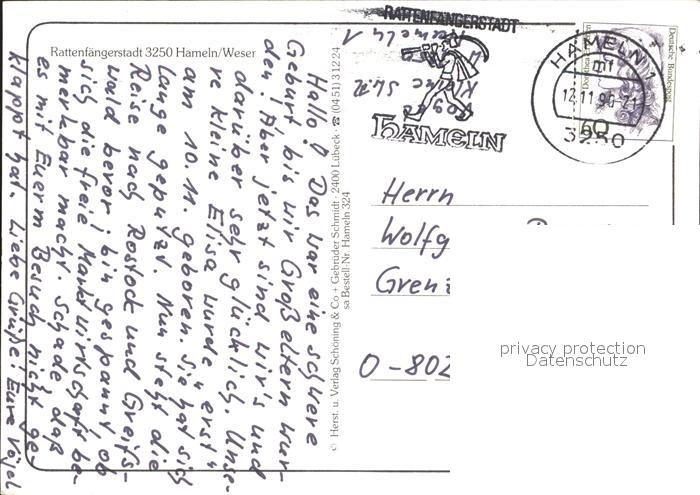 Rattenfängerstadt 3250 Hameln/Weser
Hallo! Das war eine schwere
Geburt, bis wir Großeltern wur-
den! Aber jetzt sind wir's und
darüber sehr glücklich. Unse-
re kleine Elisa wurde "erst"
am 10.11. geboren. Sie hat sich
lange geputzt. Nun steht die
Reise nach Rostock und Greifs-
wald bevor; bin gespannt, ob
sich die freie Marktwirtschaft be-
merkbar macht. Schade, daß
es mit Euerm Besuch nicht ge-
klappt hat. Liebe Grüße! Eure Vögel
© Herst. u. Verlag Schöning & Co + Gebrüder Schmidt · 2400 Lübeck · ☎ (0451) 31224
sa Bestell-Nr. Hameln 324
RATTENFÄNGERSTADT
HAMELN
HAMELN 1
mf
12.11.90-21
3250
60
Deutsche Bundespost
Hameln 1
Kleine Str.
Herrn
Wolfg
Gren
O-802
privacy protection
Datenschutz